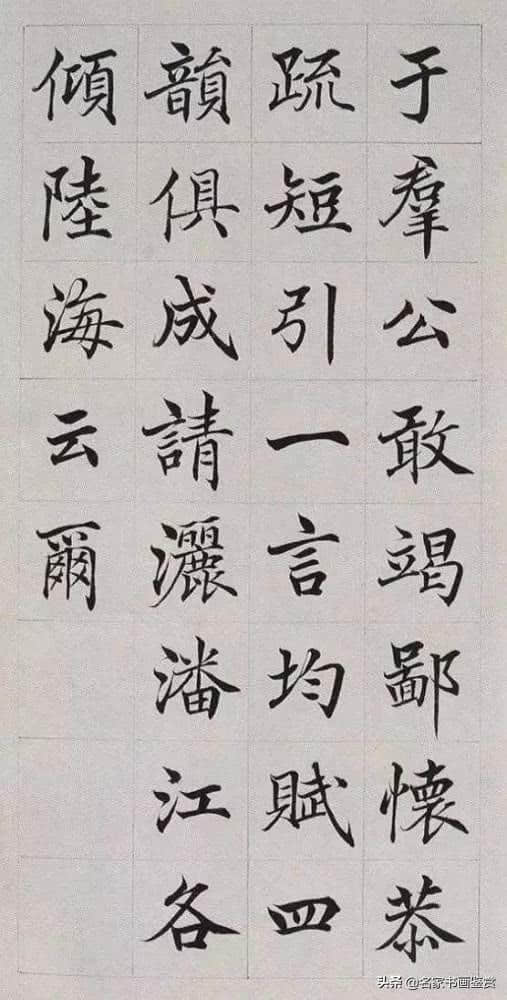 于羣公敢竭鄙懷恭
疏短引一言均賦四
韻俱成請灑潘江各
傾陸海云爾
头条 @名家书画鉴赏